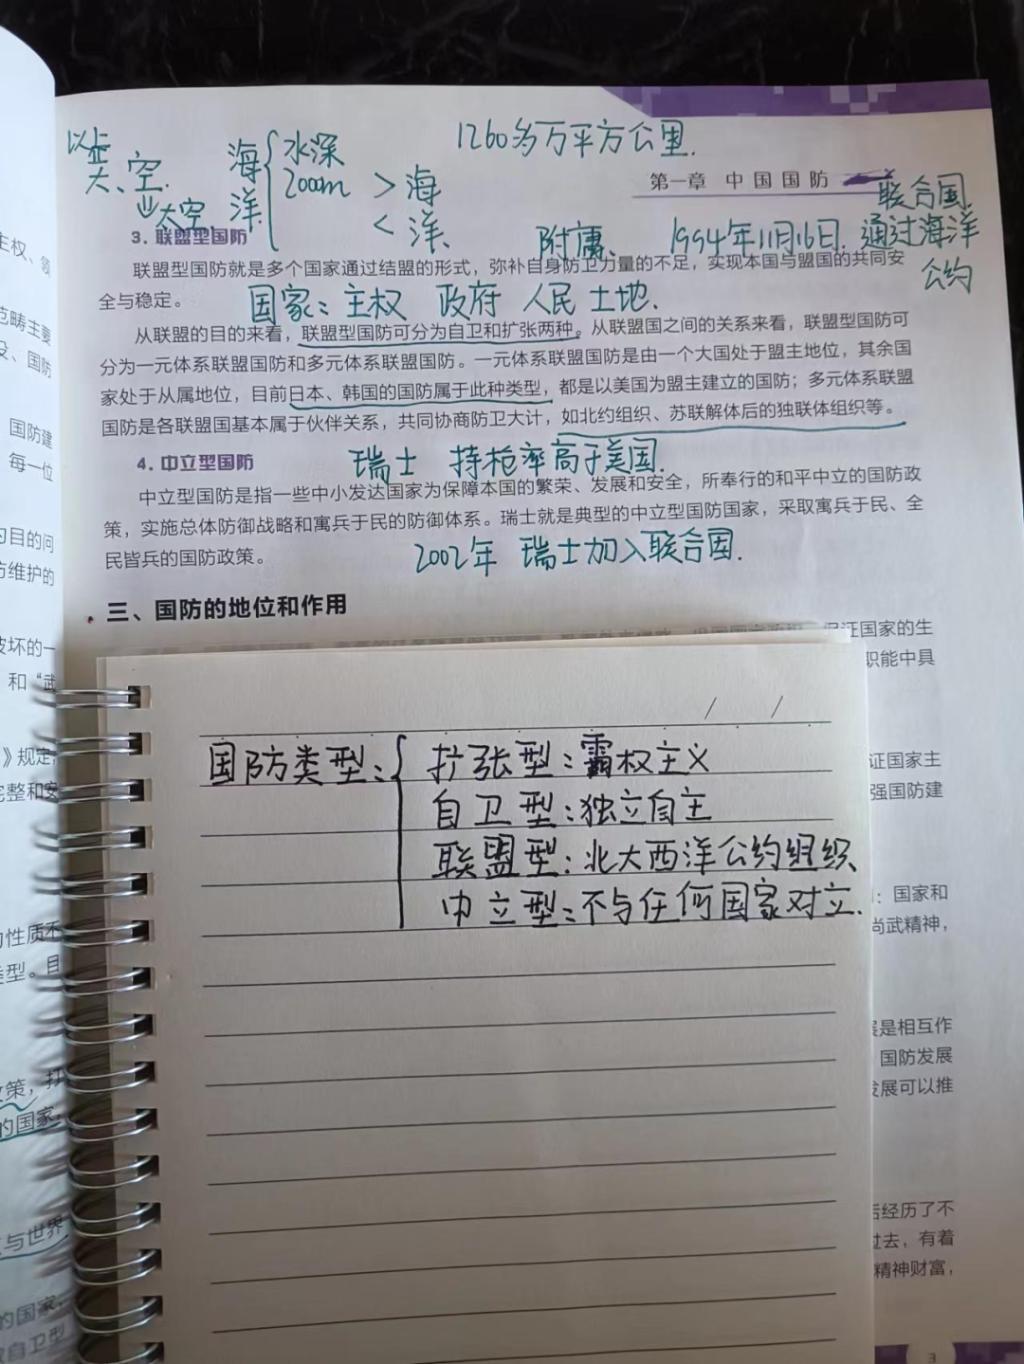 以上
类、空.
大太空
海洋
水深
2000m
> 海
< 洋、
1260多万平方公里.
第一章 中国国防
联合国
1994年11月16日. 通过海洋
公约
附庸、
3. 联盟型国防
联盟型国防就是多个国家通过结盟的形式，弥补自身防卫力量的不足，实现本国与盟国的共同安
全与稳定。
国家：主权 政府 人民 土地.
从联盟的目的来看，联盟型国防可分为自卫和扩张两种。从联盟国之间的关系来看，联盟型国防可
分为一元体系联盟国防和多元体系联盟国防。一元体系联盟国防是由一个大国处于盟主地位，其余国
家处于从属地位，目前日本、韩国的国防属于此种类型，都是以美国为盟主建立的国防；多元体系联盟
国防是各联盟国基本属于伙伴关系，共同协商防卫大计，如北约组织、苏联解体后的独联体组织等。
4. 中立型国防
瑞士 持枪率高于美国.
中立型国防是指一些中小发达国家为保障本国的繁荣、发展和安全，所奉行的和平中立的国防政
策，实施总体防御战略和寓兵于民的防御体系。瑞士就是典型的中立型国防国家，采取寓兵于民、全
民皆兵的国防政策。
2002年 瑞士加入联合国.
三、国防的地位和作用
证国家的生
职能中具
证国家主
强国防建
：国家和
尚武精神，
展是相互作
国防发展
发展可以推
后经历了不
过去，有着
精神财富，
3
国防类型：
扩张型：霸权主义
自卫型：独立自主
联盟型：北大西洋公约组织、
中立型：不与任何国家对立.
主权、领
范畴主要
设、国防
国防建
每一位
的目的问
防维护的
破坏的一
和“武
》规定，
完整和安
的性质和
类型。目
政策，打
的国家，
与世界
的国家，
自卫型